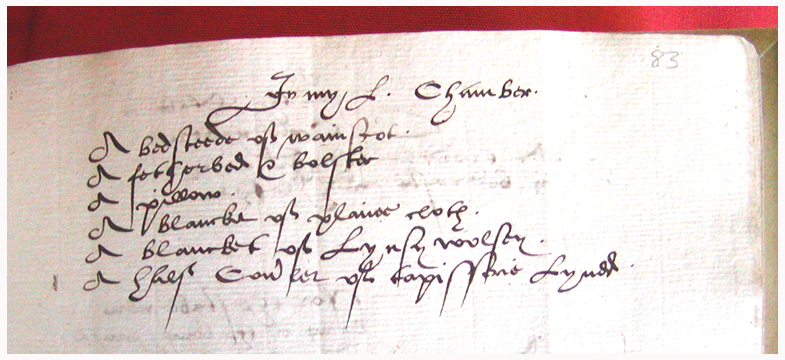 83
In my L. Chamber.
A bedsteede of wainscot.
A fetherbed & bolster
A pillow.
A blancket of plaine cloth.
A blancket of Lynsy woolsey.
A half Cou'ler of tapisserie Lyned.